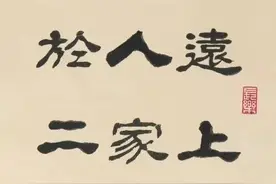 遠上
人家
於二